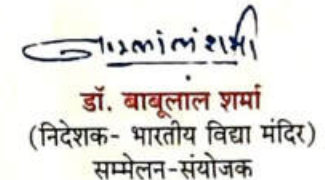 बाबूलाल शर्मा
डॉ. बाबूलाल शर्मा
(निदेशक- भारतीय विद्या मंदिर)
सम्मेलन-संयोजक